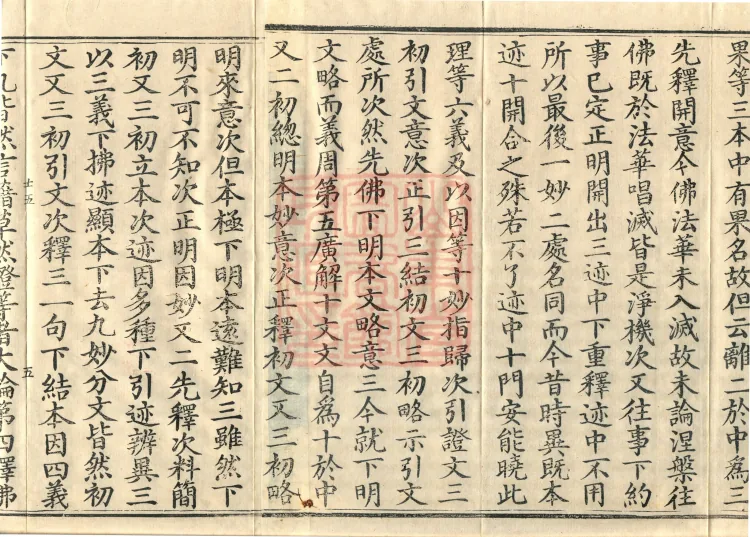 果等三本中有果名故但云離二於中為三
先釋開意今佛法華未入滅故未論涅槃往
佛既於法華唱滅皆是淨機次又往事下約
事已定正明開出三迹中下重釋迹中不用
所以最後一妙二處名同而今昔時異既本
迹十開合之殊若不了迹中十門安能曉此
理等六義及以因等十妙指歸次引證文三
初引文意次正引三結初文三初略示引文
處所次然先佛下明本文略意三今就下明
文略而義周第五廣解十文文自為十於中
又二初總明本妙意次正釋初文又三初略
明來意次但本極下明本遠難知三雖然下
明不可不知次正明因妙又二先釋次料簡
初又三初立本次迹因多種下引迹辨異三
以三義下拂迹顯本下去九妙分文皆然初
文又三初引文次釋三一句下結本因四義
下凡皆然言籍草然燈等者大論第四釋佛
十五
五